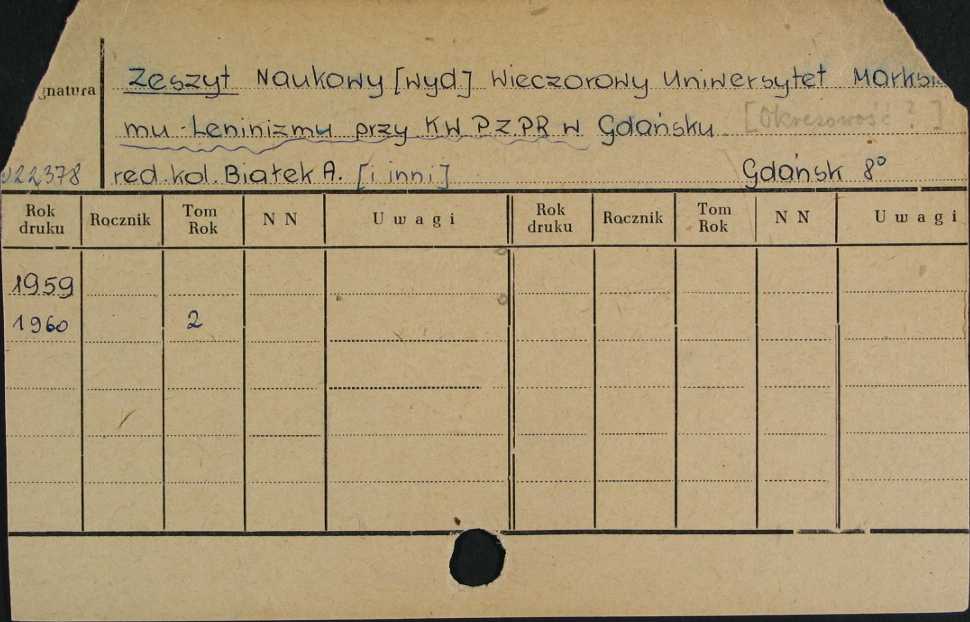 Zeszyt Naukowy [wyd.] Wieczorowy Uniwersytet Marksi
gnatura
mu-Leninizmu przy KW PZPR w Gdańsku [Okresowość?]
22378 red.kol. Białek A. [i inni] Gdańsk 8°
Rok druku Rocznik Tom Rok NN Uwagi Rok druku Rocznik Tom Rok NN Uwagi
1959
1960 2